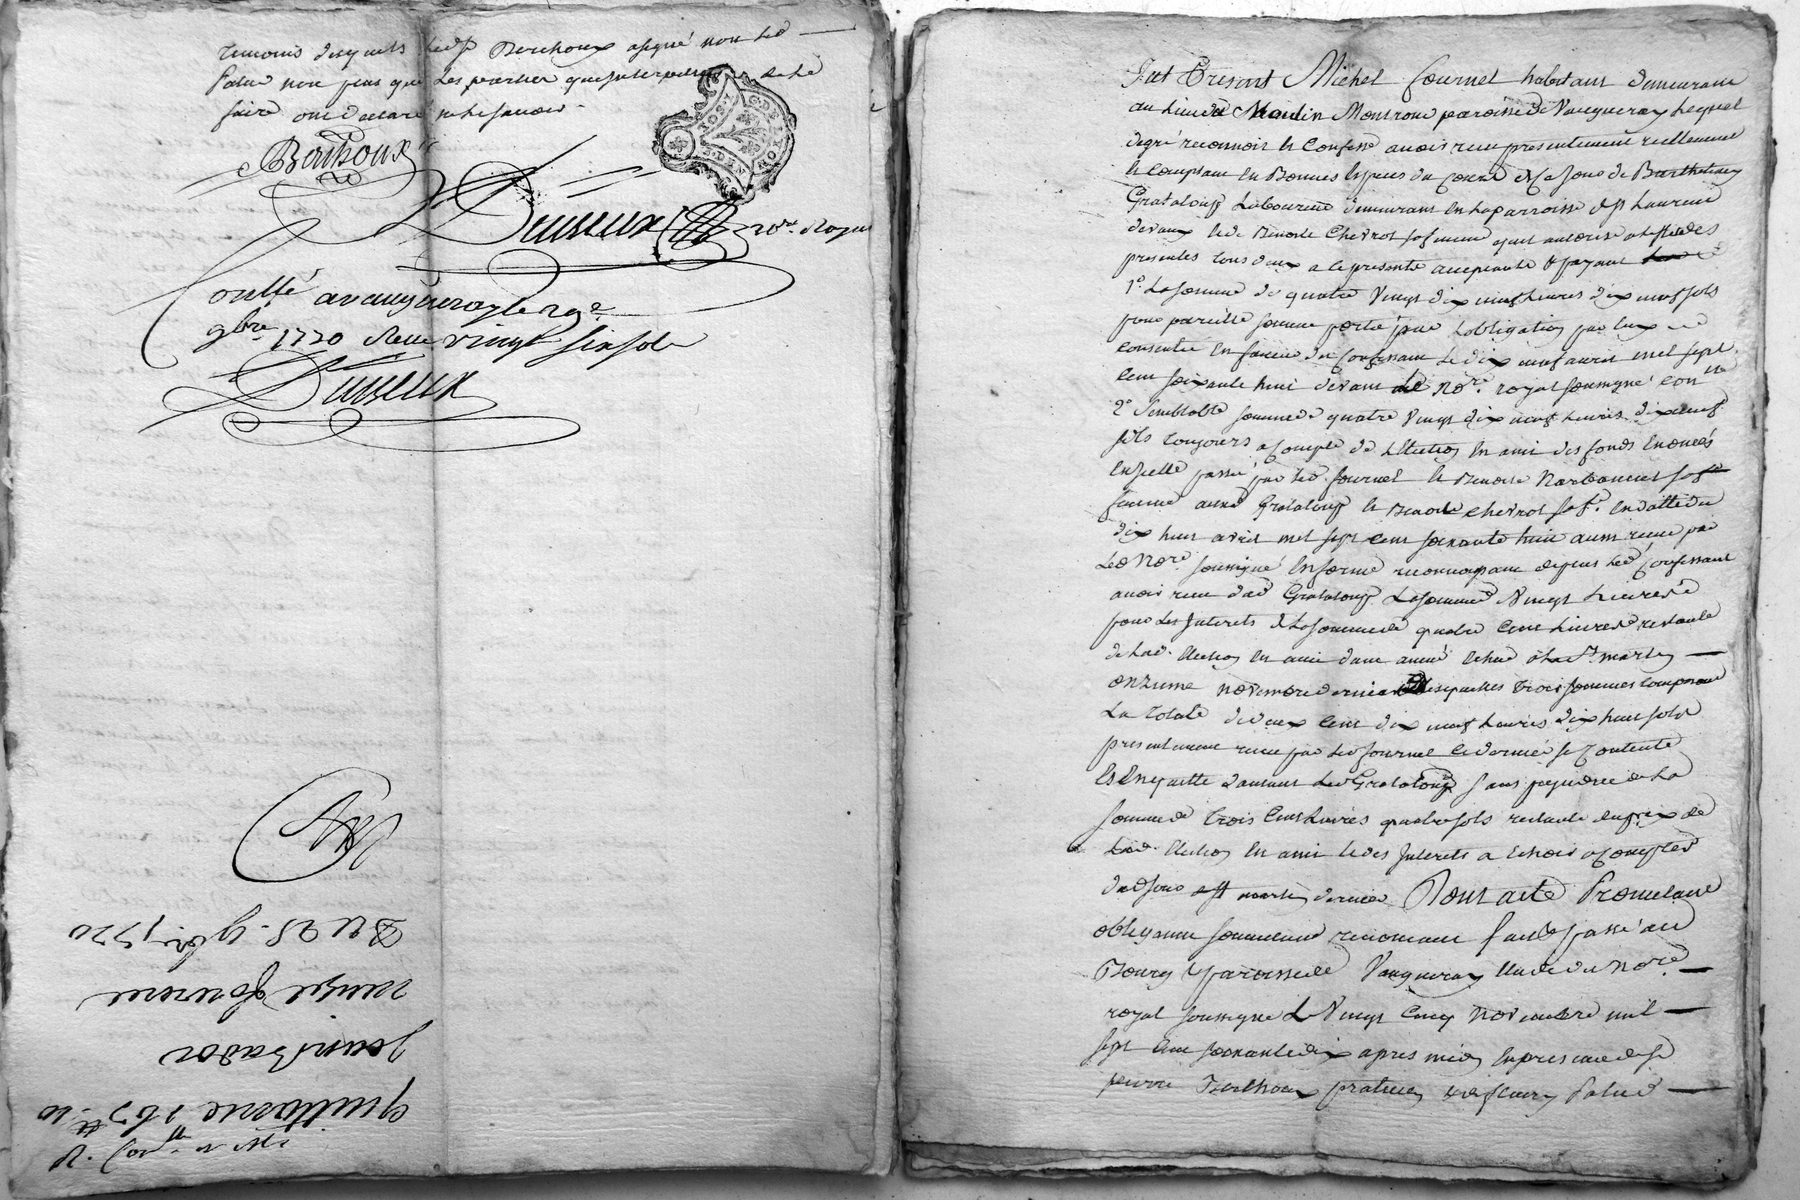 temoins desquels led. Sr. Berthoux a signé non led
Palud non plus que les parties que interpellées de le
faire ont declaré ne le savoir
Berthoux
Dusseux nore. Royal
G. DE LYON
Conllé a vaugneray le 29e.
9bre 1770 Reçu vingt six sols
Dusseux
Du 25. 9bre 1770
michel fournel
quittance
Fut Present Michel fournel habitant demeurant
au lieu de Moulin Montroux paroisse de Vaugneray Lequel
degré reconnoit et Confesse avoir reçu presentement reellement
et comptant en Bonnes especes du cours et Me Jeno de Barthelemy
Grataloup Laboureur demeurant en la parroisse de St Laurent
devaux et de Benoite Chevrot sa femme quil autorise a l'effet des
presentes tous deux a ce presents acceptants et payant
1° La somme de quatre vingt dix neuf livres dix neuf sols
pour pareille somme portée par L'obligation par eux
consentie en faveur du Confessant le dix neuf avril mil sept
cent soixante huit devant le Nore. royal soussigné con.lle
2° Semblable somme de quatre vingt dix neuf livres dix neuf
sols toujours a compte de L'Election en ami des fonds enoncés
en icelle passée par led. fournel et Benoite Narbonnet sa
femme aud Grataloup et Benoite Chevrot sa fe. en datte du
dix huit avril mil sept cent soixante huit aussi reçue par
Led Nore. soussigné Enfin reconnoissant depuis led Confessant
avoir reçu dud Grataloup La somme de Vingt Livres
pour Les Interets de La somme de quatre Cent Livres restante
de lad. Election en ami d'une année echue a la St. martin
onzieme novembre dernier Lesquelles trois sommes composant
La totale de deux cent dix neuf Livres dix huit sols
presentement reçue par led fournel ce dernier se Contente
et En quitte d'autant led Grataloup sans prejudice de La
somme de trois Cent Livres quatre sols restante du prix de
lad. Election en ami et des Interets a Echoir a compter
dud jour de St martin dernier Dont acte Promettant
obligeant soumettant renonceant fait et passé au
Bourg et paroisse de Vaugneray Etude du Nore.
royal soussigné Le Vingt Cinq novembre mil
sept Cent soixante dix apres midy en presence de Sr
pierre Berthoux praticien et de fleury Palud